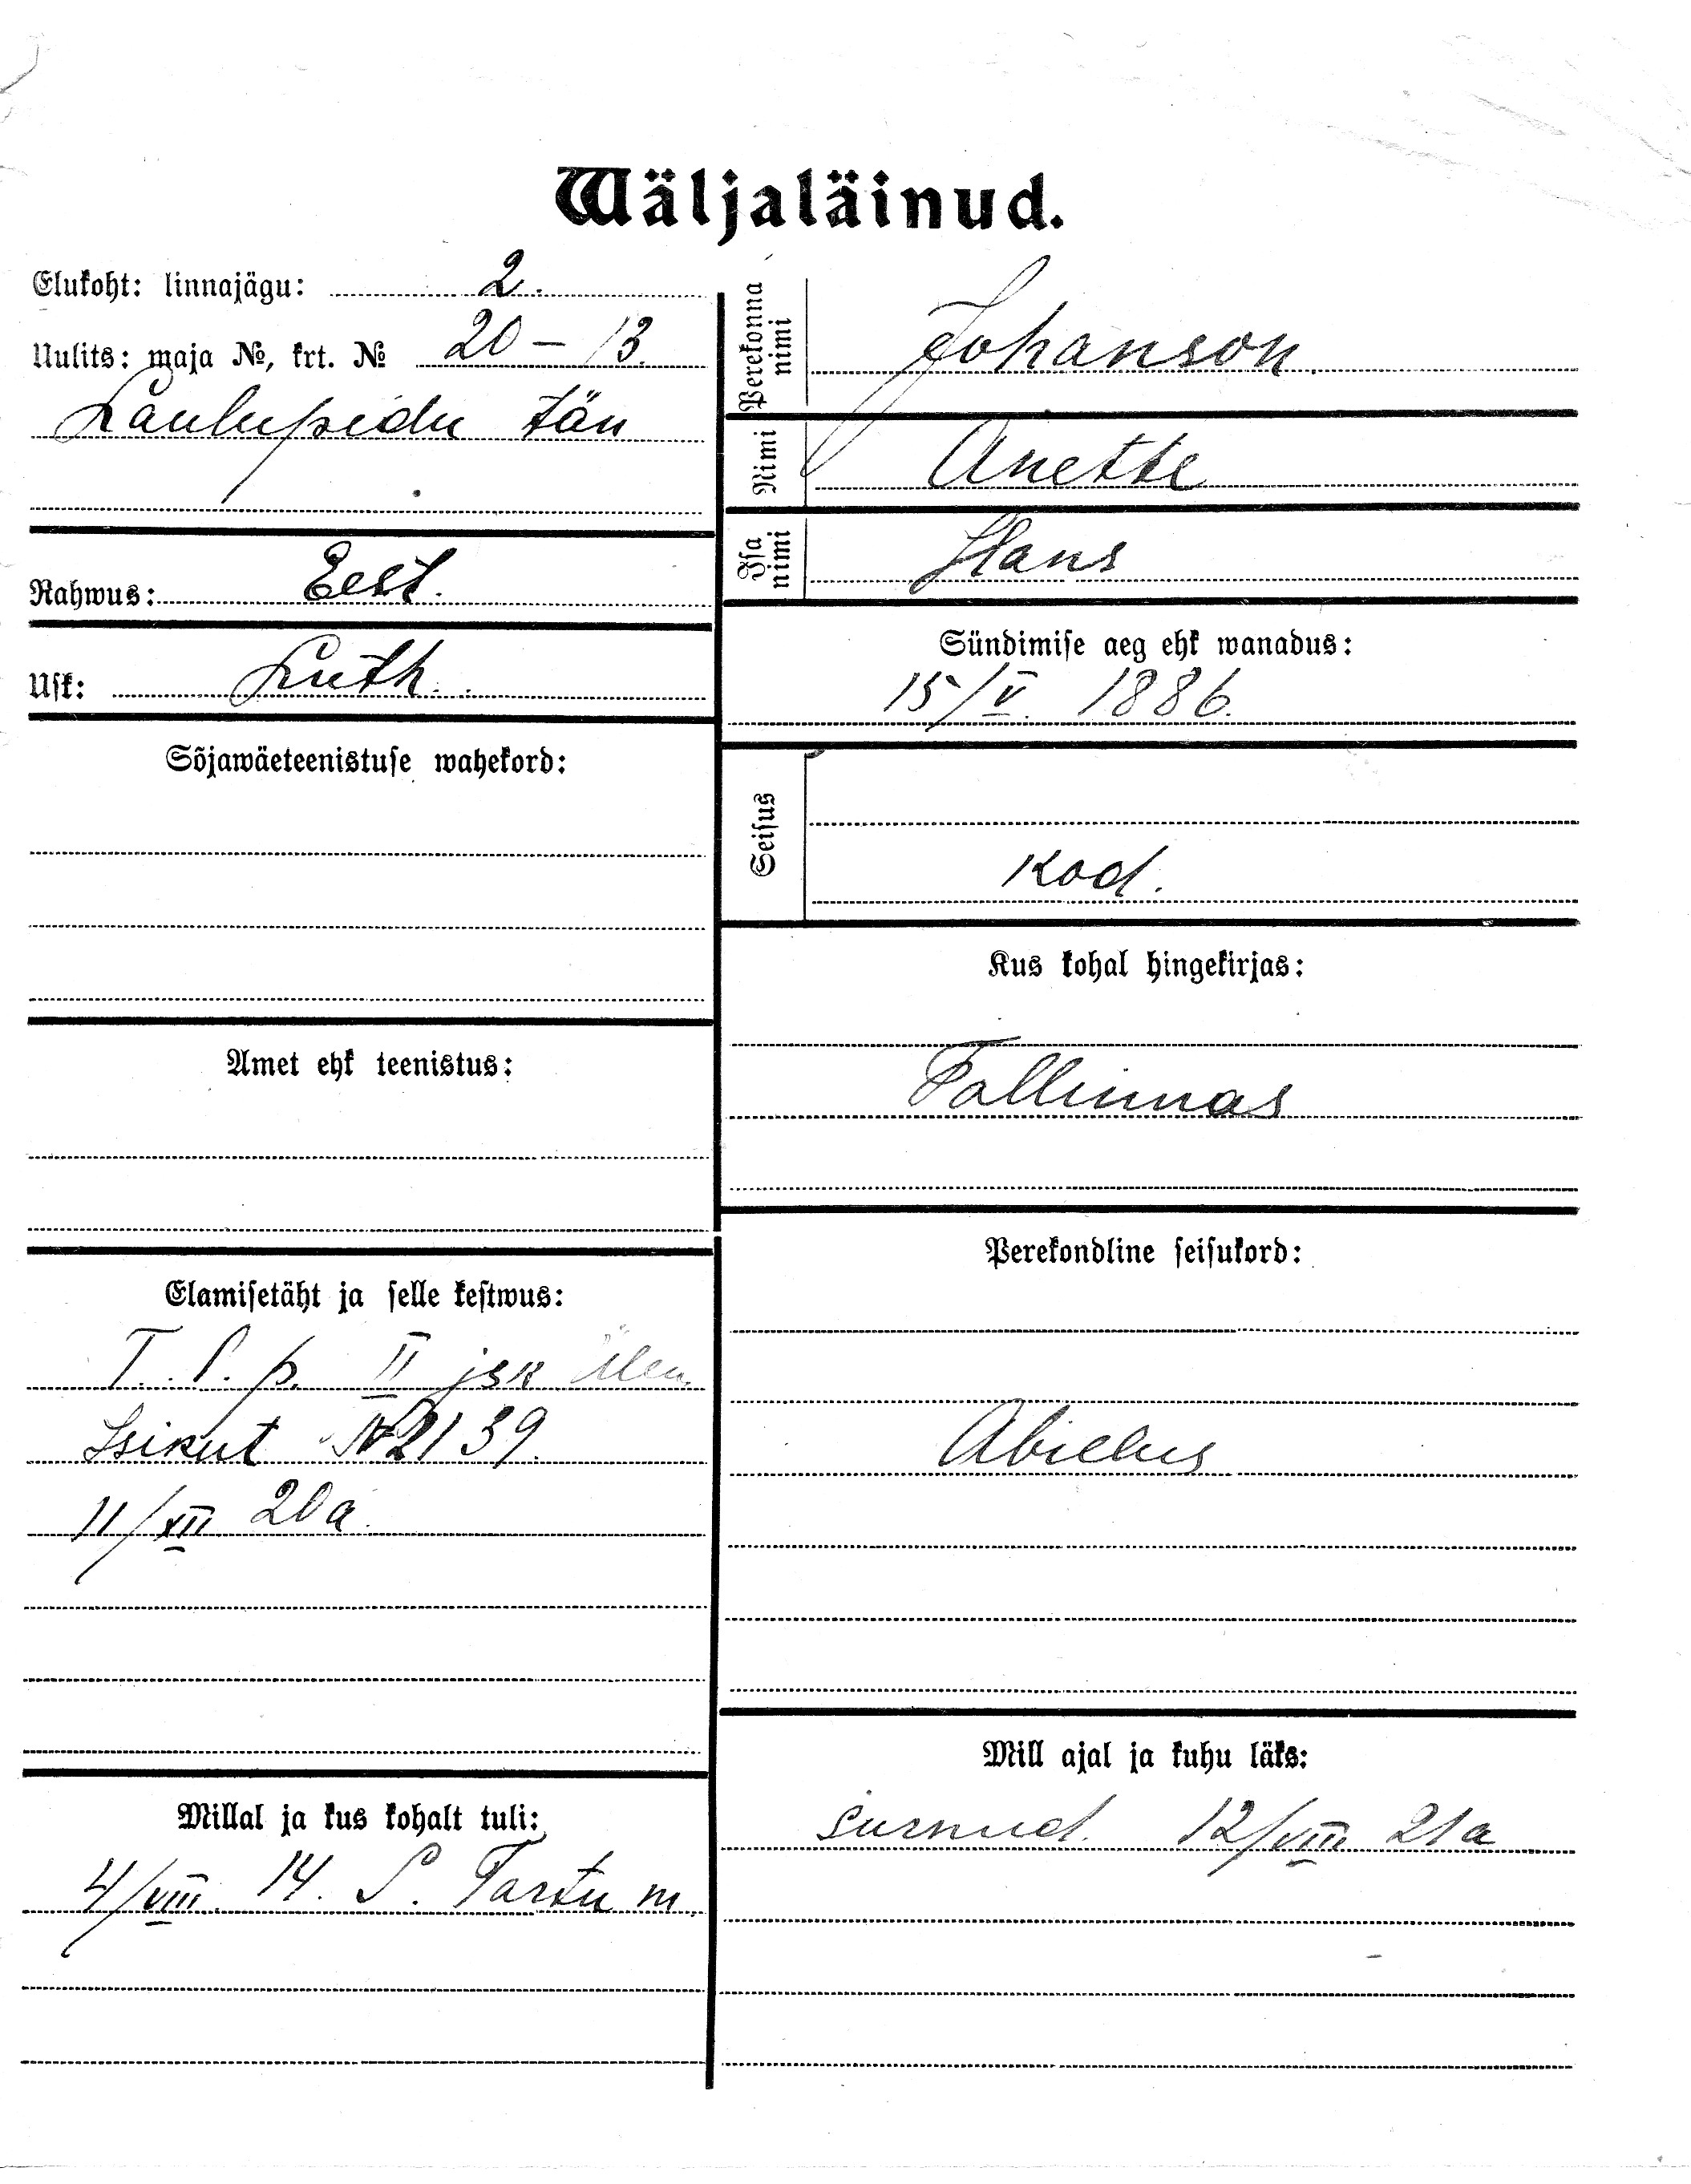 Wäljaläinud.
Elukoht: linnajägu: 2.
Uulits: maja №, krt. № 20 – 13.
Laulupidu tän
Rahwus: Eest.
Usk: Luth.
Sõjawäeteenistuse wahekord:
Amet ehk teenistus:
Elamisetäht ja selle kestwus:
T. l. p. II jsk
Isikut № 2139.
11/XII 20a.
Millal ja kus kohalt tuli:
4/VIII. 14. S. Tartu m.
Perekonna nimi Johanson
Nimi Anette
Isa nimi Hans
Sündimise aeg ehk wanadus:
15/V. 1886.
Seisus
kod.
Kus kohal hingekirjas:
Tallinnas
Perekondline seisukord:
Abielus
Mill ajal ja kuhu läks:
surnud. 12/VIII 21a